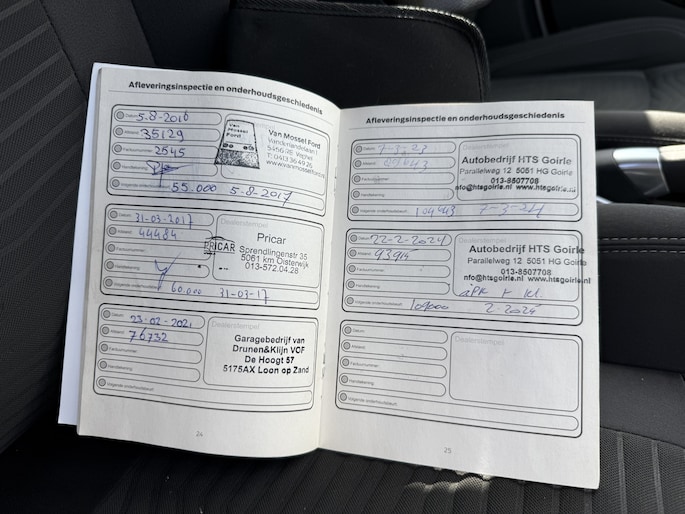 Afleveringsinspectie en onderhoudsgeschiedenis
Datum 5-8-2016
Afstand 35129
Factuurnummer 2545
Handtekening
Volgende onderhoudsbeurt 55.000 5-8-2017
Van Mossel Ford
Van Mossel Ford
Vanderlandelaan 1
5466 RE Veghel
T: 0413 36 49 26
Datum 31-03-2017
Afstand 44484
Factuurnummer
Handtekening
Volgende onderhoudsbeurt 60.000 31-03-17
Dealerstempel
PRICAR
Pricar
Sprendlingenstr 35
5061 km Oisterwijk
013-572.04.28
Datum 23-02-2021
Afstand 76732
Factuurnummer
Handtekening
Volgende onderhoudsbeurt
Dealerstempel
Garagebedrijf van
Drunen&Klijn VOF
De Hoogt 57
5175AX Loon op Zand
24
Afleveringsinspectie en onderhoudsgeschiedenis
Datum 7-3-23
Afstand
Factuurnummer
Handtekening
Volgende onderhoudsbeurt 104643 7-3-24
Autobedrijf HTS Goirle
Parallelweg 12 5051 HG Goirle
013-8507708
nfo@htsgoirle.nl www.htsgoirle.nl
Datum 22-2-2024
Afstand
Factuurnummer
Handtekening
Volgende onderhoudsbeurt
Autobedrijf HTS Goirle
Parallelweg 12 5051 HG Goirle
013-8507708
info@htsgoirle.nl www.htsgoirle.nl
Datum
Afstand
Factuurnummer
Handtekening
Volgende onderhoudsbeurt
Dealerstempel
25